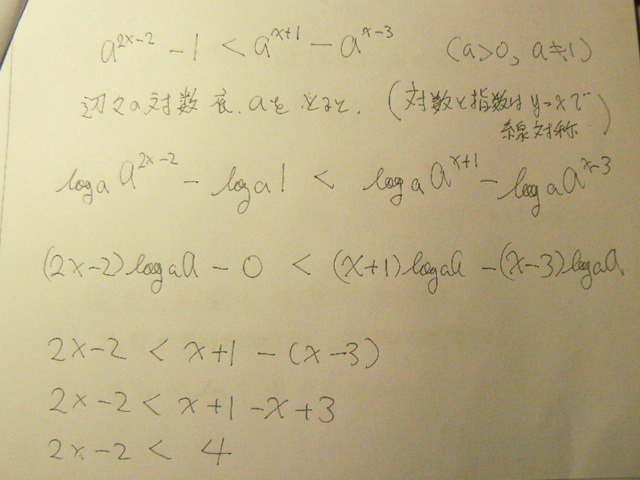 a^{2x-2} - 1 < a^{x+1} - a^{x-3} (a>0, a≠1)
辺々の対数 底.aをとると. (対数と指数はy=xで
線対称)
log_a a^{2x-2} - log_a 1 < log_a a^{x+1} - log_a a^{x-3}
(2x-2)log_a a - 0 < (x+1)log_a a - (x-3)log_a a
2x-2 < x+1 - (x-3)
2x-2 < x+1 - x+3
2x-2 < 4